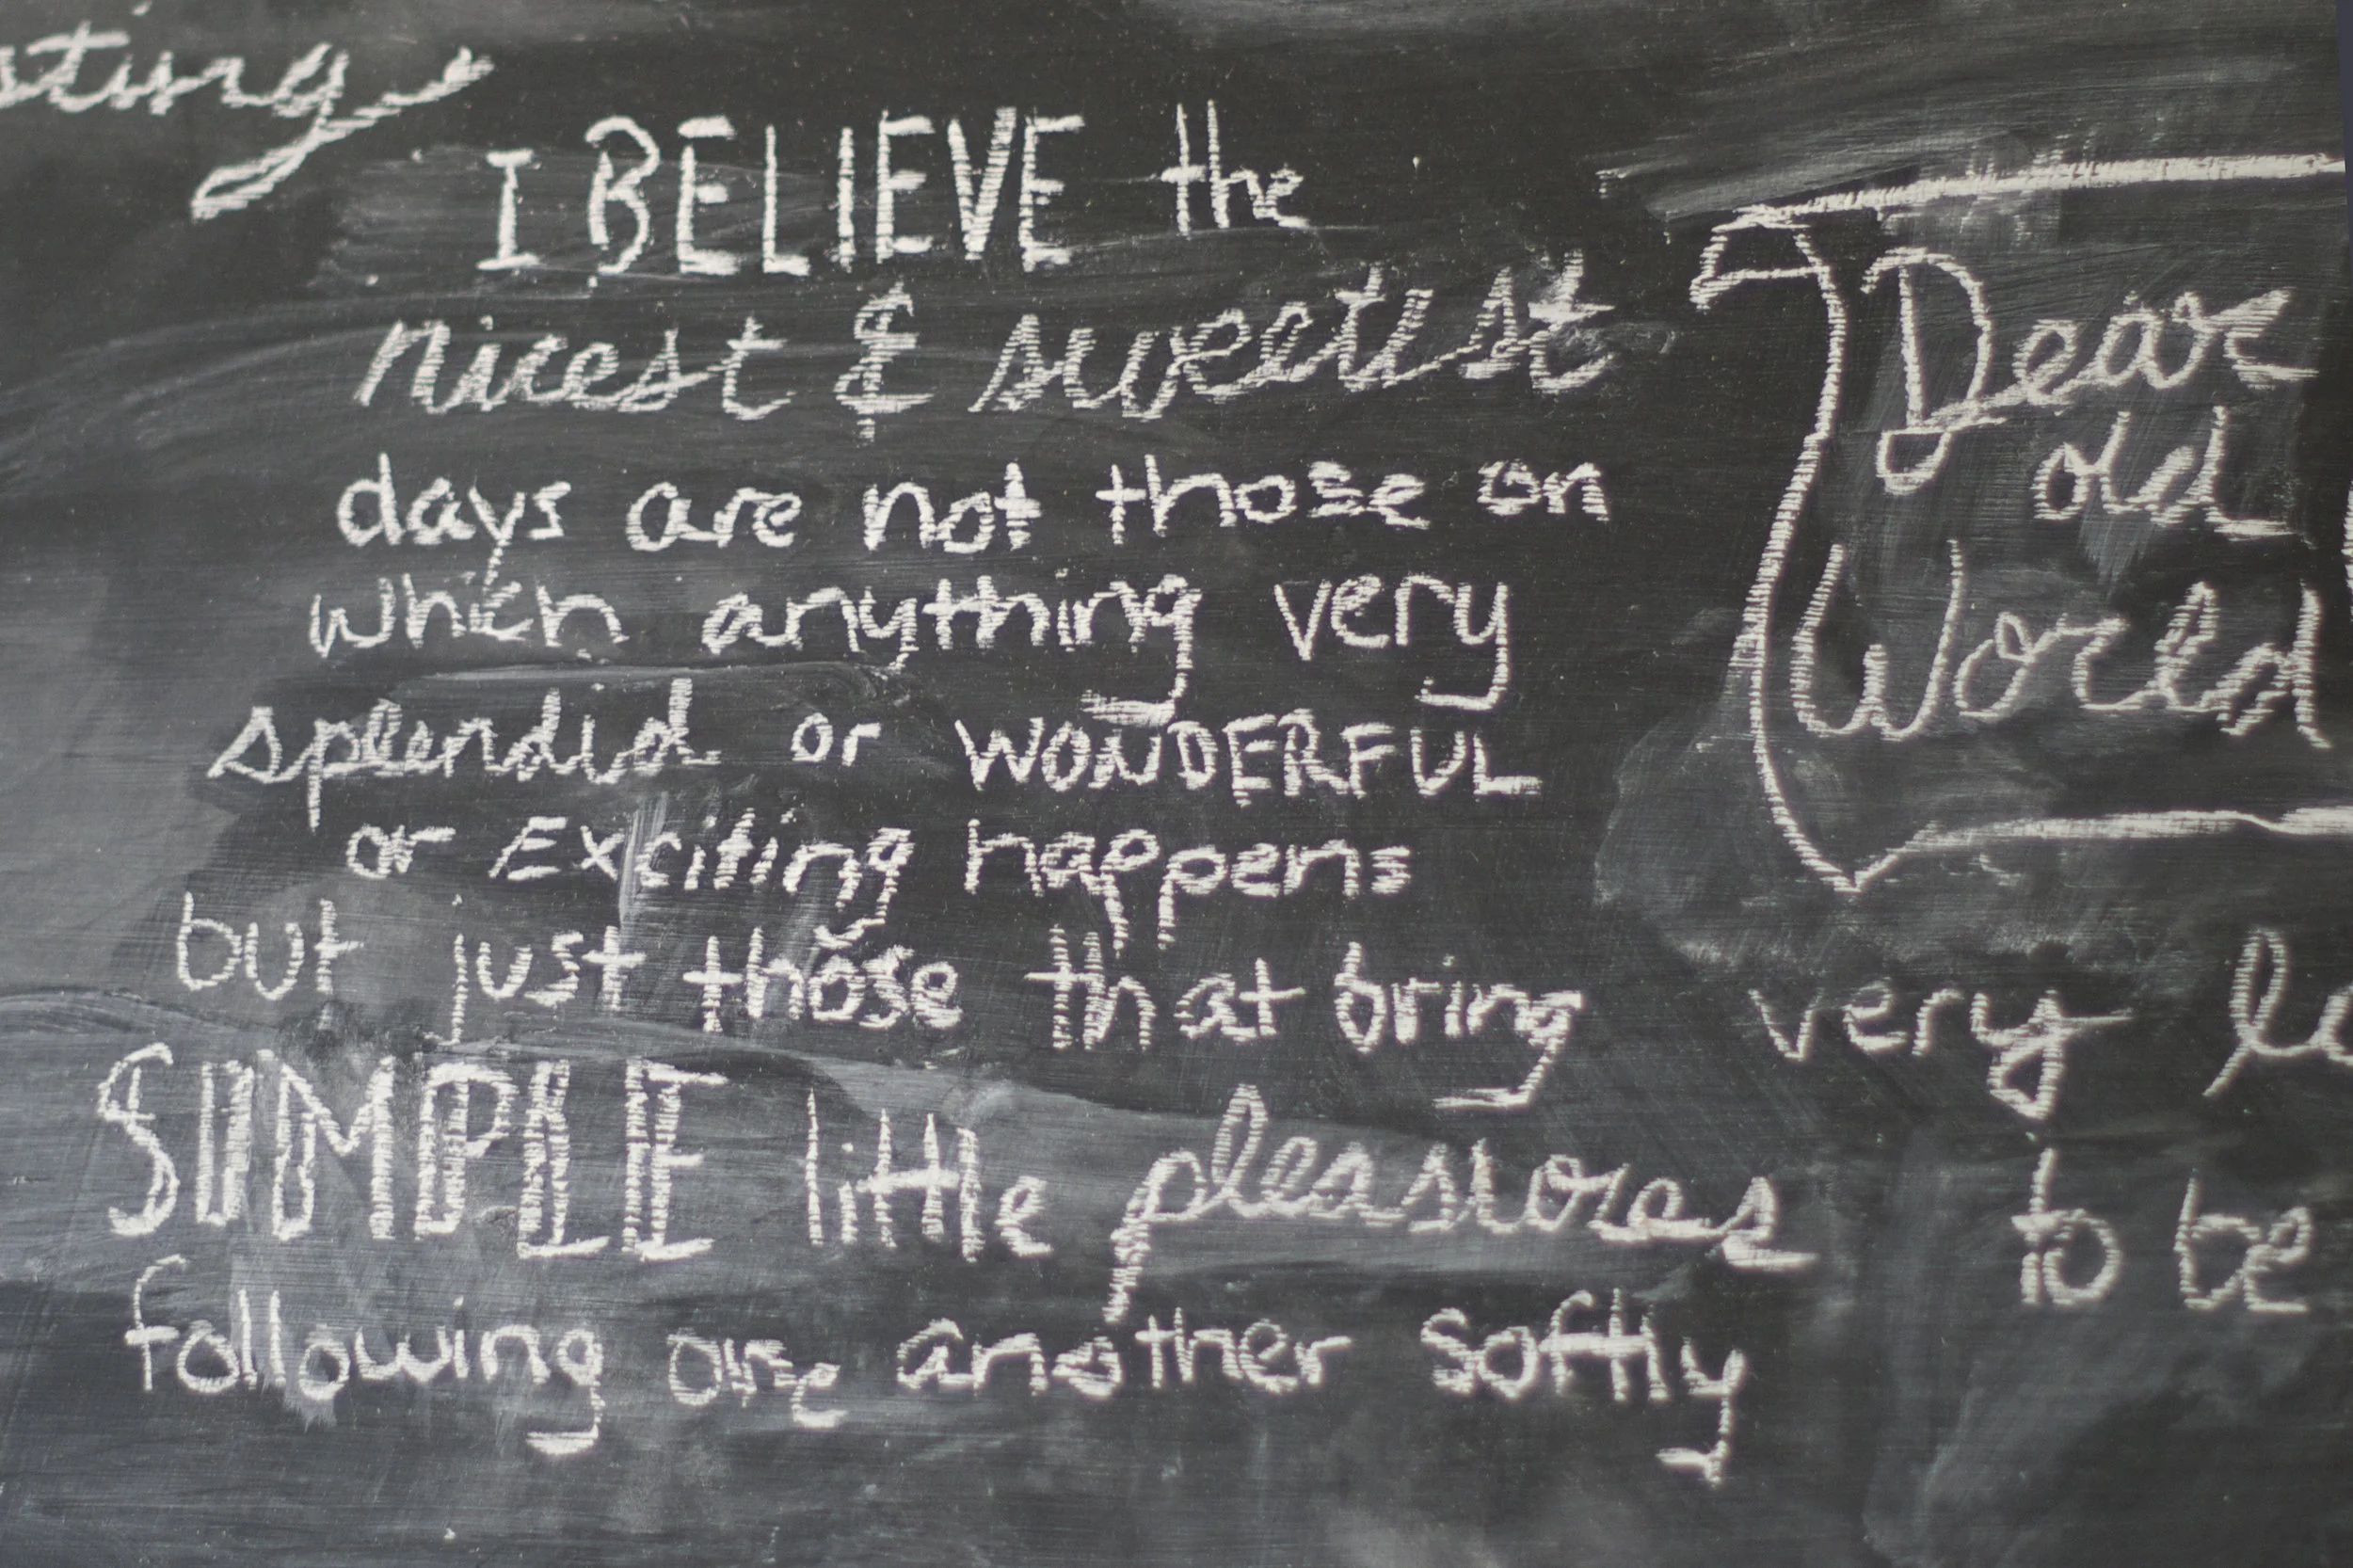 I BELIEVE the
nicest & sweetest
days are not those on
which anything very
splendid or WONDERFUL
or Exciting happens
but just those that bring
SIMPLE little pleasures
following one another softly
Dear
old
World
very
to be